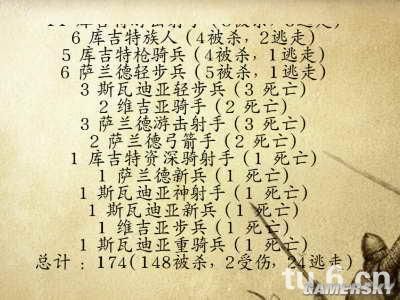 6 库吉特族人（4被杀，2逃走）
5 库吉特枪骑兵（4被杀，1逃走）
6 萨兰德轻步兵（5被杀，1逃走）
3 斯瓦迪亚轻步兵（3 死亡）
2 维吉亚骑手（2 死亡）
3 萨兰德游击射手（3 死亡）
2 萨兰德弓箭手（2 死亡）
1 库吉特资深骑射手（1 死亡）
1 萨兰德新兵（1 死亡）
1 斯瓦迪亚神射手（1 死亡）
1 斯瓦迪亚新兵（1 死亡）
1 维吉亚步兵（1 死亡）
1 斯瓦迪亚重骑兵（1 死亡）
总计：174（148被杀，2受伤，24逃走）
tu.6.cn
GAMERSKY